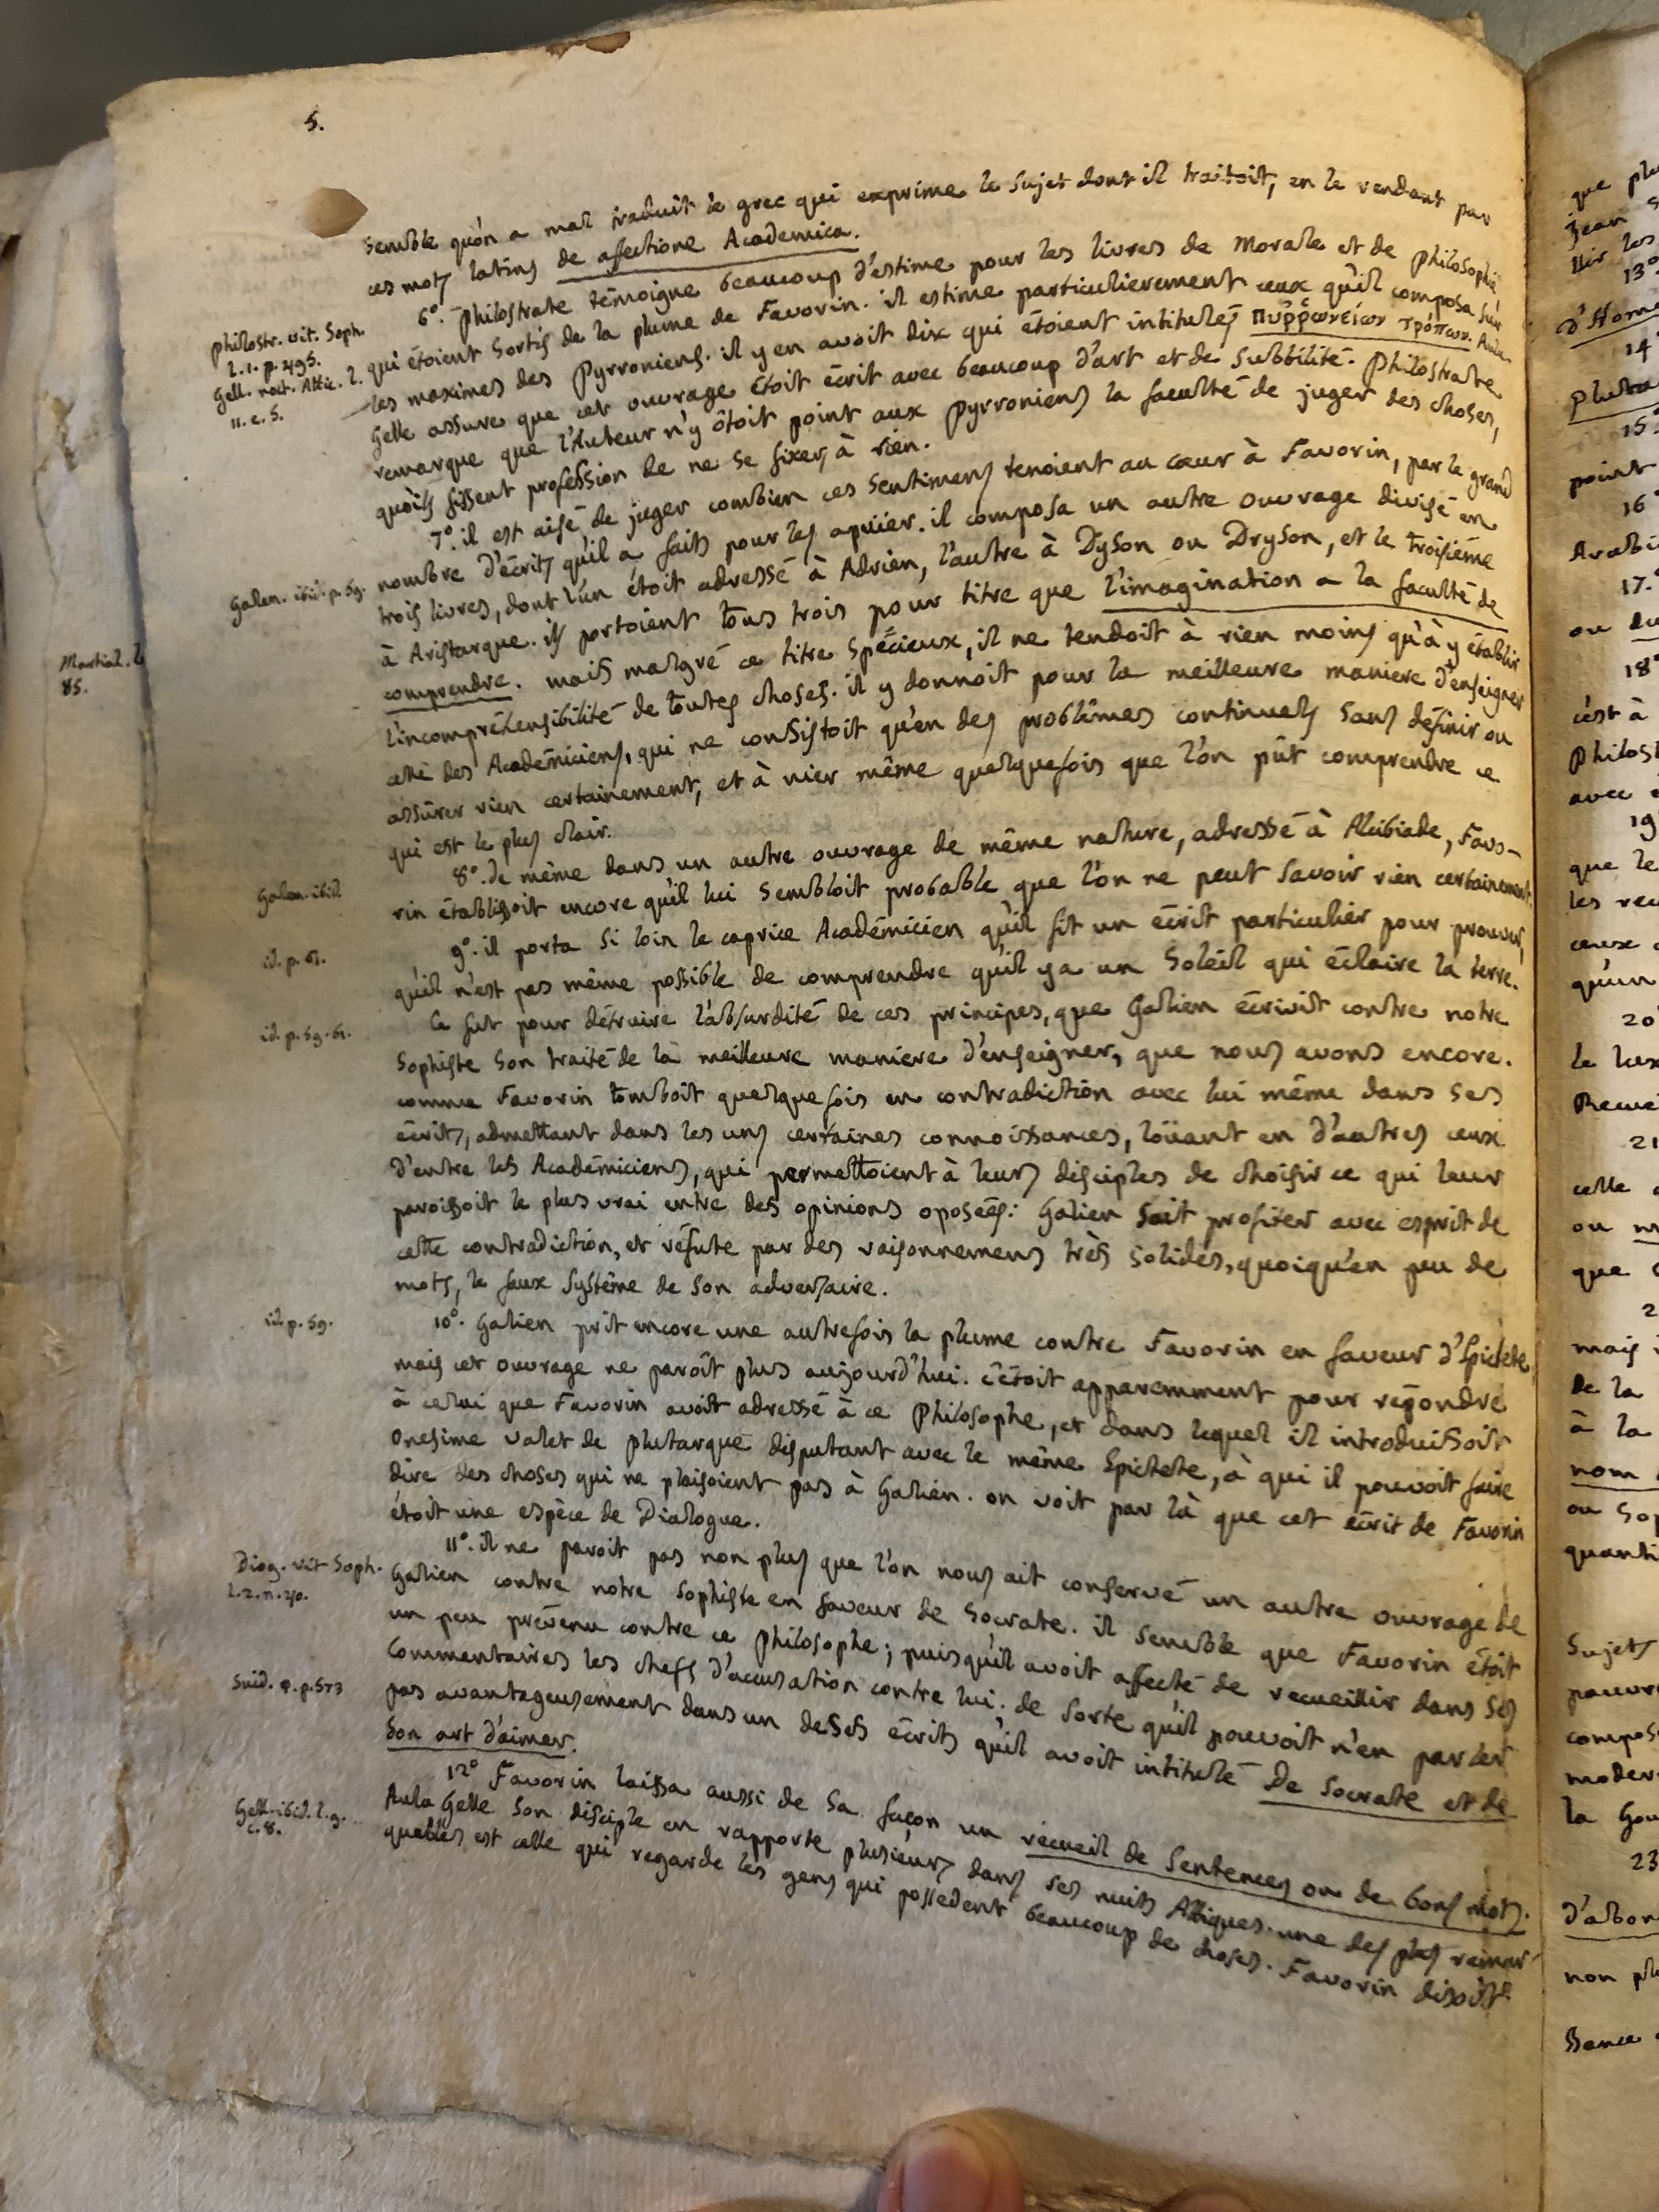 5.
semble qu'on a mal traduit le grec qui exprime le sujet dont il traitoit, en le rendant par
ces mots latins de affectione Academica.
6°. Philostrate témoigne beaucoup d'estime pour les livres de Morale et de philosophie
Philostr. vit. Soph.
l. 1. p. 495.
qui étoient sortis de la plume de Favorin. il estime particulierement ceux qu'il composa sur
Gell. noct. Attic. l.
11. c. 5.
les maximes des Pyrroniens. il y en avoit dix qui étoient intitulés πυῤῥωνείων τρόπων. Aule-
Gelle assure que cet ouvrage étoit écrit avec beaucoup d'art et de subtilité. Philostrate
remarque que l'Auteur n'y ôtoit point aux pyrroniens la faculté de juger des choses,
quoiqu'ils fissent profession de ne se fixer à rien.
7°. il est aisé de juger combien ces sentimens tenoient au cœur à Favorin, par le grand
nombre d'écrits qu'il a faits pour les apuier. il composa un autre ouvrage divisé en
Galen. ibid. p. 59.
trois livres, dont l'un étoit adressé à Adrien, l'autre à Dyson ou Dryson, et le troisiéme
à Aristarque. ils portoient tous trois pour titre que l'imagination a la faculté de
comprendre. mais malgré ce titre spécieux, il ne tendoit à rien moins qu'à y établir
Martial. l.
85.
l'incompréhensibilité de toutes choses. il y donnoit pour la meilleure maniere d'enseigner
celle des Académiciens, qui ne consistoit qu'en des problêmes continuels sans définir ou
assûrer rien certainement, et à nier même quelquefois que l'on pût comprendre ce
qui est le plus clair.
8°. de même dans un autre ouvrage de même nature, adressé à Alcibiade, Favo-
Galen. ibid
rin établissoit encore qu'il lui sembloit probable que l'on ne peut savoir rien certainement.
9°. il porta si loin le caprice Académicien qu'il fit un écrit particulier pour prouver,
id. p. 61.
qu'il n'est pas même possible de comprendre qu'il y a un Soleil qui éclaire la terre.
Ce fut pour détruire l'absurdité de ces principes, que Galien écrivit contre notre
id. p. 59. 61.
Sophiste son traité de la meilleure maniere d'enseigner, que nous avons encore.
comme Favorin tomboit quelquefois en contradiction avec lui même dans ses
écrits, admettant dans les uns certaines connoissances, loüant en d'autres ceux
d'entre les Académiciens, qui permettoient à leurs disciples de choisir ce qui leur
paroissoit le plus vrai entre des opinions oposées: Galien sait profiter avec esprit de
cette contradiction, et réfute par des raisonnemens très solides, quoiqu'en peu de
mots, le faux système de son adversaire.
id. p. 59.
10°. Galien prit encore une autrefois la plume contre Favorin en faveur d'Epictete,
mais cet ouvrage ne paroît plus aujourd'hui. c'étoit apparemment pour répondre
à celui que Favorin avoit adressé à ce Philosophe, et dans lequel il introduisoit
Onesime valet de plutarque disputant avec le même Epictete, à qui il pouvoit faire
dire des choses qui ne plaisoient pas à Galien. on voit par là que cet écrit de Favorin
étoit une espèce de Dialogue.
11°. il ne paroit pas non plus que l'on nous ait conservé un autre ouvrage de
Diog. vit Soph.
l. 2. n. 40.
Galien contre notre Sophiste en faveur de Socrate. il semble que Favorin étoit
un peu prévenu contre ce philosophe; puisqu'il avoit affecté de recueillir dans ses
Commentaires les chefs d'accusation contre lui: de sorte qu'il pouvoit n'en parler
Suid. φ. p. 573
pas avantageusement dans un de ses écrits qu'il avoit intitulé De Socrate et de
son art d'aimer.
12° Favorin laissa aussi de sa façon un recueil de Sentences ou de bons mots.
Gell. ibid. l. 9.
c. 8.
Aulu Gelle son disciple en rapporte plusieurs dans ses nuits Attiques. une des plus remar-
quables est celle qui regarde les gens qui possedent beaucoup de choses. Favorin disoit